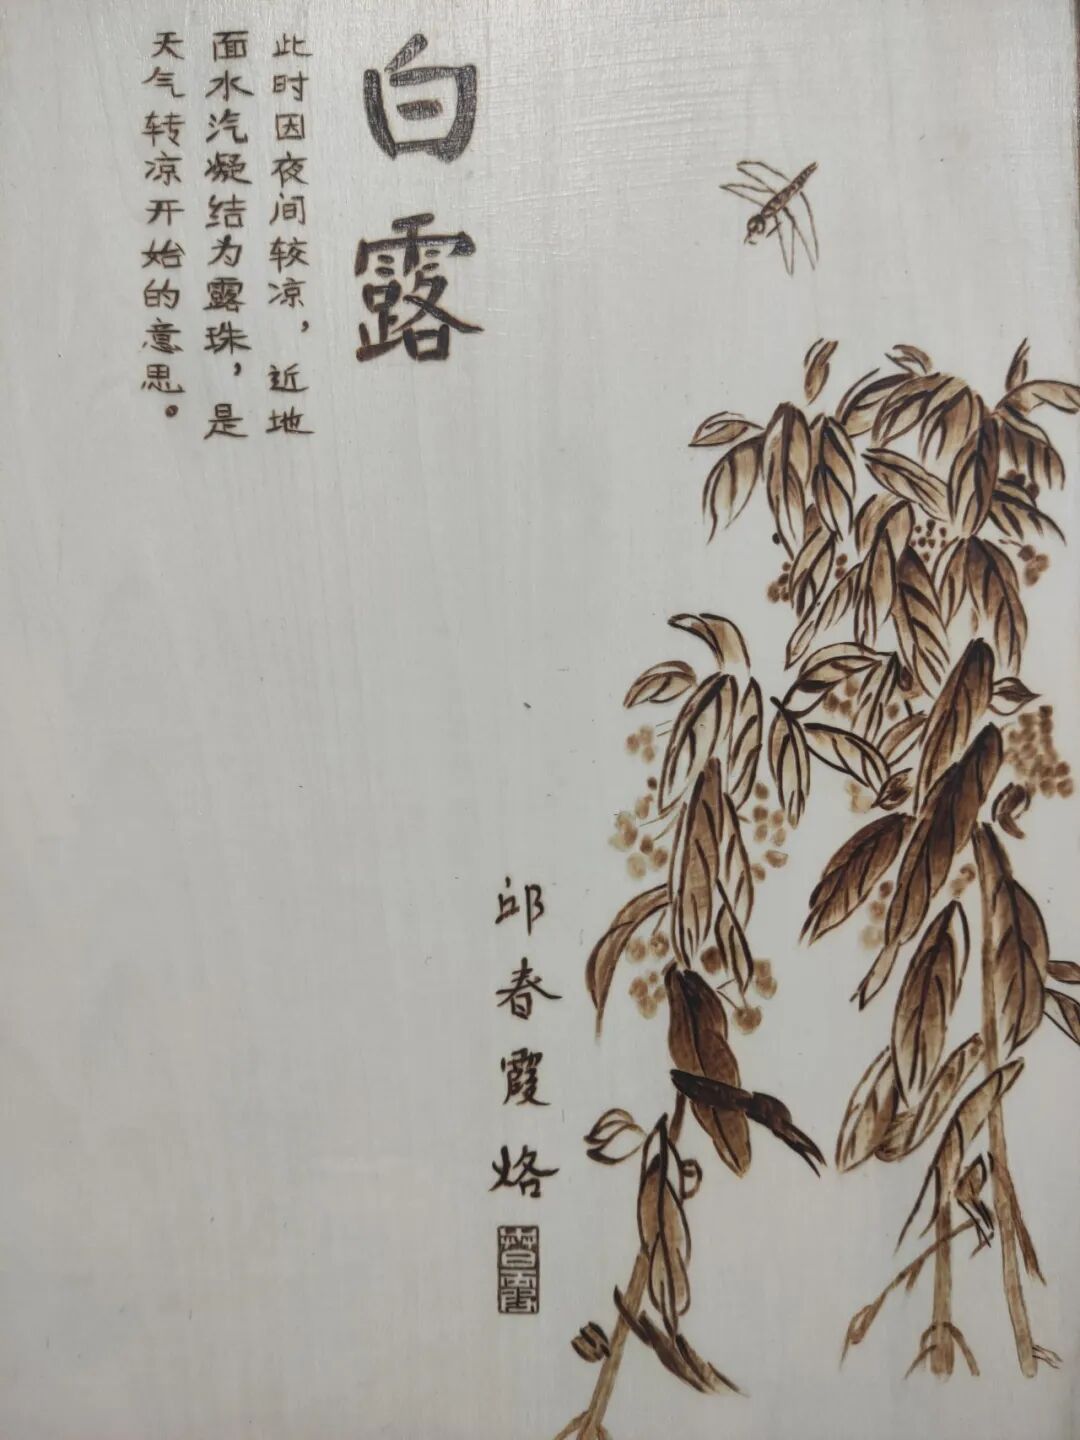 白露
此时因夜间较凉，近地
面水汽凝结为露珠，是
天气转凉开始的意思。
邱春霞烙
春霞